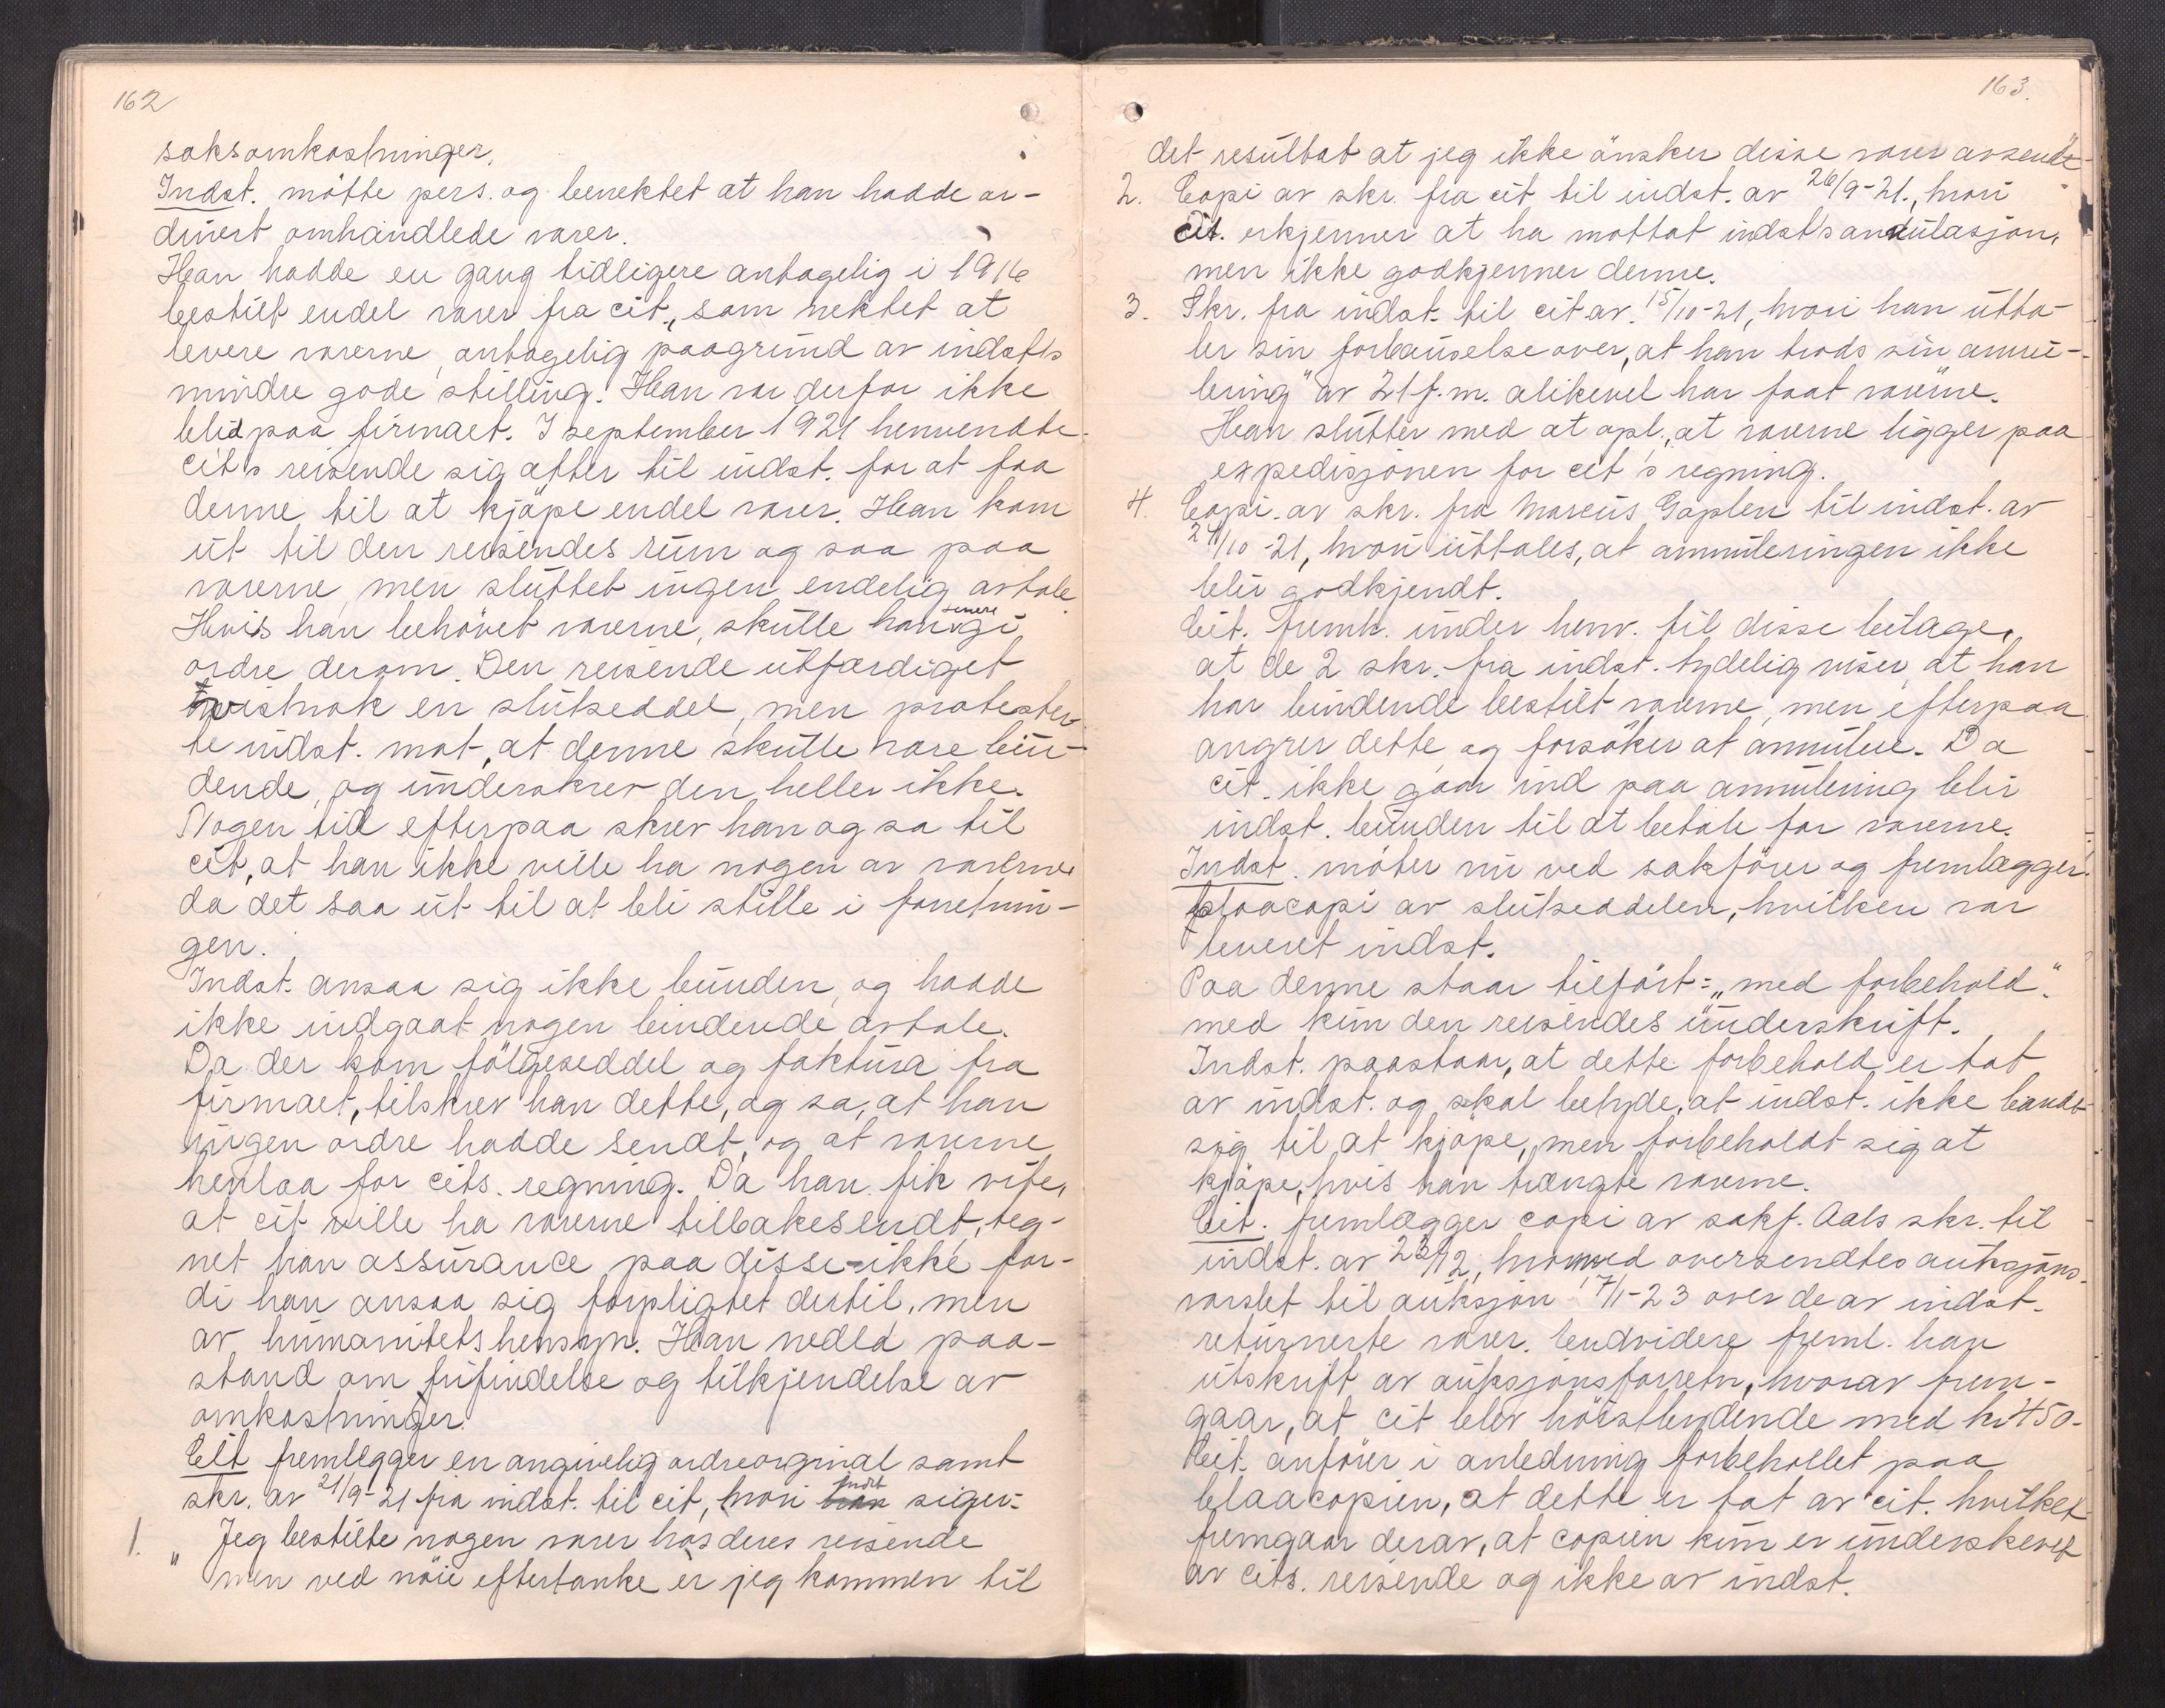 162
saksomkostninger.
Indst. mötte pers. og benektet at han hadde or-
dinert omhandlede varer.
Han hadde en gang tidligere antagelig i 1916
bestilt endel varer fra cit., som nektet at
levere varerne, antagelig paagrund av indst's
mindre gode stilling. Han var derfor ikke
blid paa firmaet. I september 1921 henvendte
cit's reisende sig atter til indst. for at faa
denne til at kjöpe endel varer. Han kom
ut til den reisendes rum og saa paa
varerne, men sluttet ingen endelig avtale.
Hvis han behövet varerne, skulle han senere gi
ordre derom. Den reisende utfærdiget
trvistnok en slutseddel, men protester-
te indst. mot, at denne skulle være bin-
dende, og underskrev den heller ikke.
Nogen tid efterpaa skrev han og sa til
cit, at han ikke ville ha nogen av varerne,
da det saa ut til at bli stille i forretnin-
gen.
Indst. ansaa sig ikke bunden, og hadde
ikke indgaat nogen bindende avtale.
Da der kom fölgeseddel og faktura fra
firmaet, tilskrev han dette, og sa, at han
ingen ordre hadde sendt, og at varerne
henlaa for cits. regning. Da han fik vite,
at cit ville ha varerne tilbakesendt, teg-
net han assurance paa disse - ikke for-
di han ansaa sig forpligtet dertil, men
av humanitetshensyn. Han nedla paa-
stand om frifindelse og tilkjendelse av
omkostninger.
Cit fremlegger en angivelig ordreorginal samt
skr. av 21/9-21 fra indst. til cit, hvori han indst siger:
1. " Jeg bestilte nogen varer hos deres reisende
men ved nöie eftertanke er jeg kommen til
163.
det resultat at jeg ikke önsker disse varer avsendt"
2. Copi av skr. fra cit til indst. av 26/9-21., hvori
Cit. erkjenner at ha mottat indst's anulasjon,
men ikke godkjenner denne.
3. Skr. fra indst. til cit av. 15/10-21, hvori han utta-
ler sin forbauselse over, at han trods sin annu-
lering" av 21 f.m. alikevel har faat varerne.
Han slutter med at opl., at varerne ligger paa
expedisjonen for cit's regning.
4. Copi. av skr. fra Marcus Gaplen til indst. av
24/10-21, hvori uttales, at annuleringen ikke
blir godkjendt.
Cit. fremh. under henv. til disse bilage,
at de 2 skr. fra indst. tydelig viser, at han
har bindende bestilt varerne, men efterpaa
angrer dette, og forsöker at annulere. Da
cit. ikke gaar ind paa annulering blir
indst. bunden til at betale for varerne.
Indst. möter nu ved sakförer og fremlægger
blaacopi av slutseddelen, hvilken var
leveret indst.
Paa denne staar tilfört: "med forbehold".
med kun den reisendes underskrift.
Indst. paastaar, at dette forbehold er tat
av indst. og skal betyde, at indst. ikke bandt
sig til at kjöpe, men forbeholdt sig at
kjöpe, hvis han trængte varerne.
Cit. fremlægger copi av sakf. Aals skr. til
indst. av 23/12, hvorved oversendtes auksjons-
varslet til auksjon 7/1-23 over de av indst.
returnerte varer. Endvidere freml. han
utskrift av auksjonsforretn, hvorav frem-
gaar, at cit blev höistbydende med kr 450.-
Cit. anförer i anledning forbeholdet paa
blaacopien, at dette er tat av cit. hvilket
fremgaar derav, at copien kun er underskevet
av cits. reisende og ikke av indst.